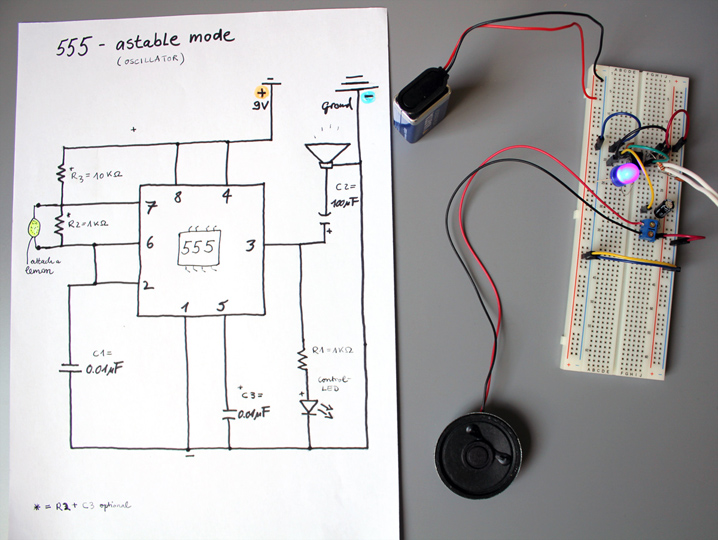 555 - astable mode
(OSCILLATOR)
+
9V
+
ground
-
R3 = 10KΩ
* R2 = 1KΩ
attach a
lemon
8 4
7
6
2
3
1 5
555
C2 =
100µF
+
C1 =
0.01µF
* C3 =
0.01µF
R1 = 1KΩ
control
LED
+
-
* = R2 + C3 optional